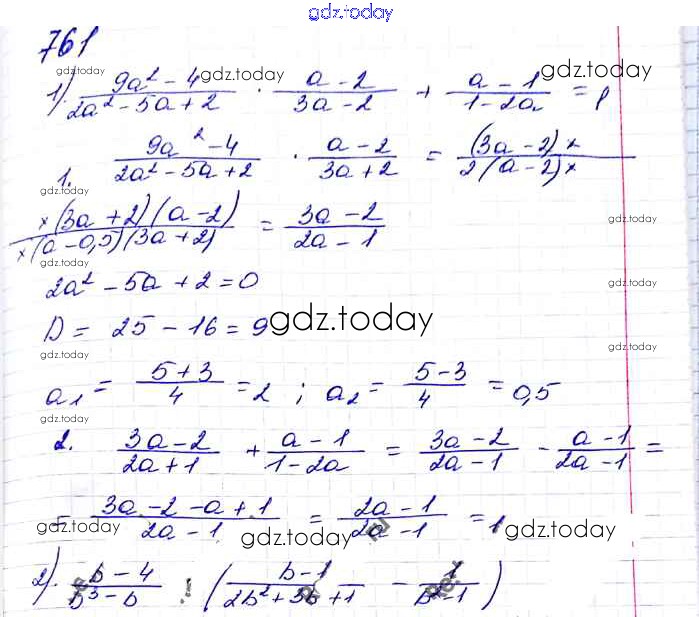 gdz.today
761
1) (9a² - 4)/(2a² - 5a + 2) · (a - 2)/(3a - 2) + (a - 1)/(1 - 2a) = 1
gdz.today gdz.today gdz.today
1. (9a² - 4)/(2a² - 5a + 2) · (a - 2)/(3a + 2) = ((3a - 2)×)/(2(a - 2)×)
gdz.today
(×(3a + 2)(a - 2))/(×(a - 0,5)(3a + 2)) = (3a - 2)/(2a - 1)
gdz.today gdz.today
2a² - 5a + 2 = 0
D = 25 - 16 = 9
gdz.today gdz.today gdz.today
a₁ = (5 + 3)/4 = 2 ; a₂ = (5 - 3)/4 = 0,5
gdz.today
2. (3a - 2)/(2a + 1) + (a - 1)/(1 - 2a) = (3a - 2)/(2a - 1) - (a - 1)/(2a - 1) =
= (3a - 2 - a + 1)/(2a - 1) = (2a - 1)/(2a - 1) = 1
gdz.today gdz.today gdz.today
2) (b - 4)/(b³ - b) : ((b - 1)/(2b² + 3b + 1) - 1/(b² - 1))